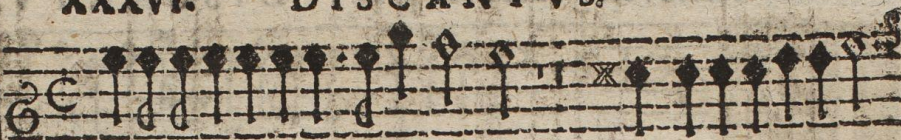 XXXVI. DISCANTVS.